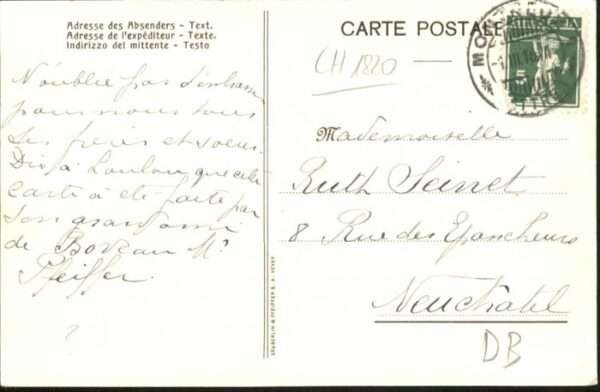 Adresse des Absenders – Text.
Adresse de l'expéditeur – Texte.
Indirizzo del mittente – Testo
CARTE POSTALE
CH 1820
N'oublie pas
pour nous tous
ses frères et soeurs.
Dis à Loulou que cette
carte a été faite par
son grand ami
de Bovean Mr
Pfeiffer.
?
Mademoiselle
Ruth Seinet
8 Rue des Epancheurs
Neuchatel
DB
SÄUBERLIN & PFEIFFER S. A. VEVEY